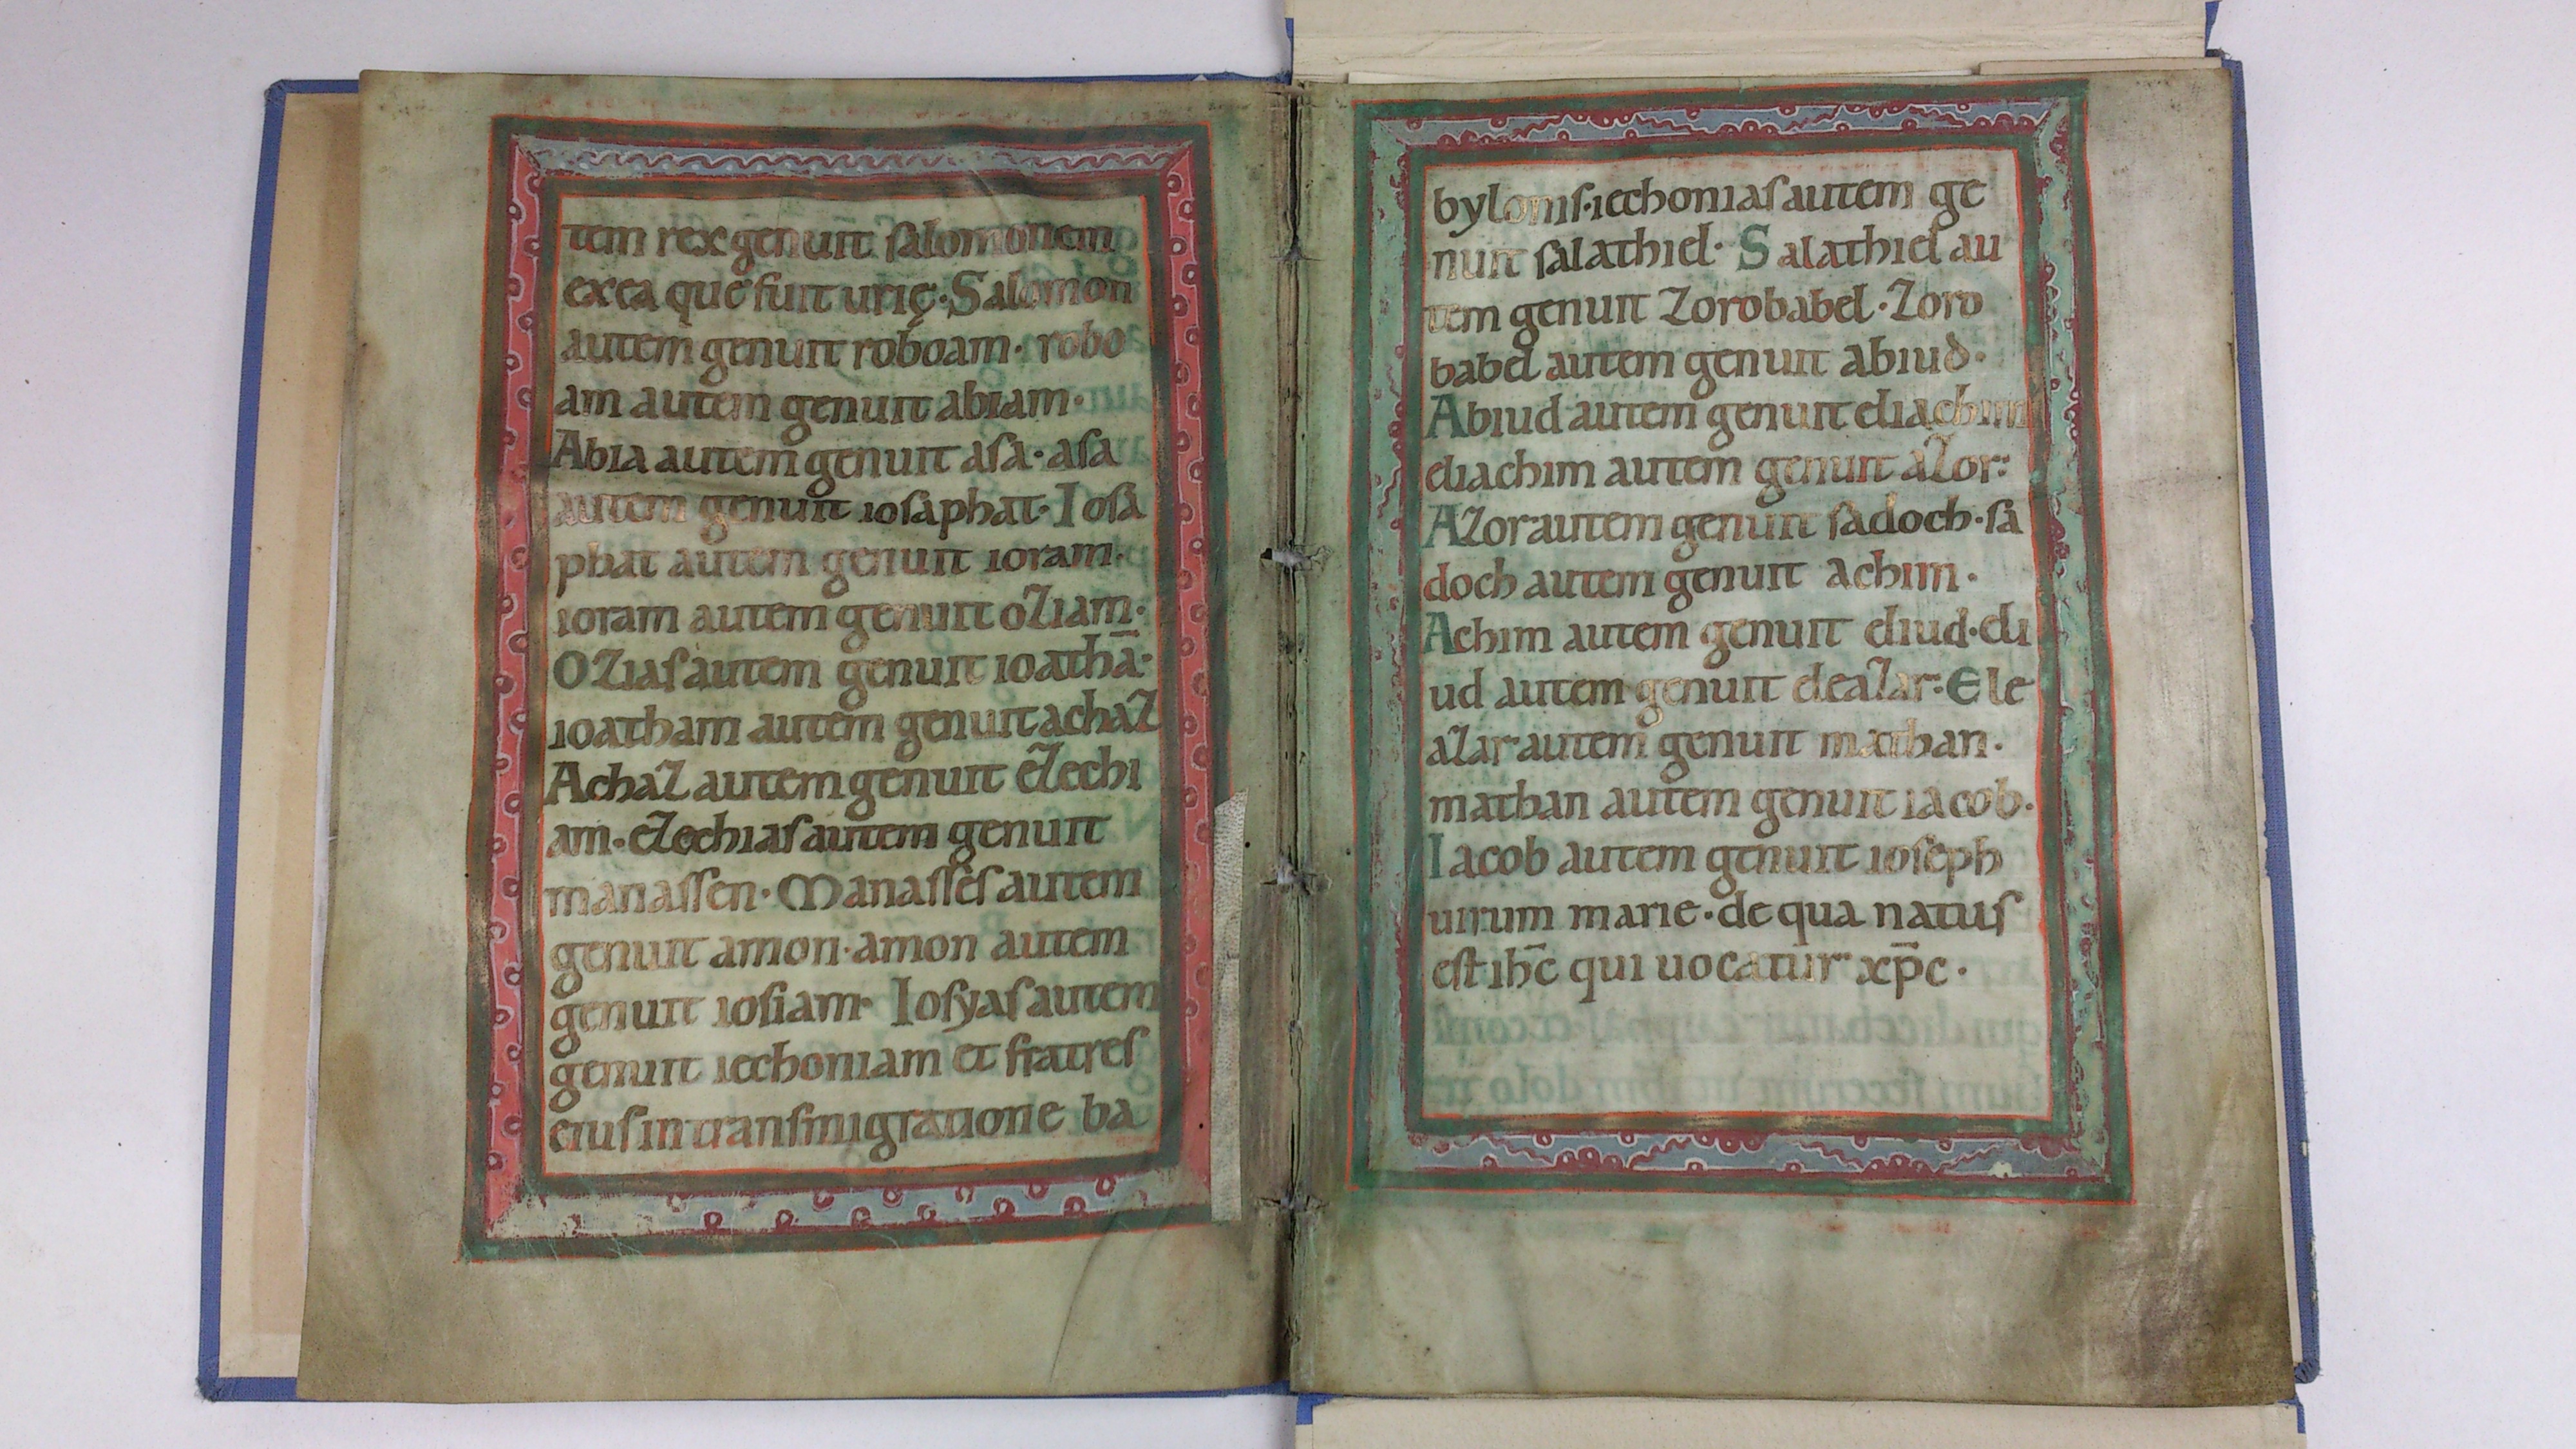 tem rex genuit salomonem
ex ea que fuit urię · Salomon
autem genuit roboam · robo
am autem genuit abiam ·
Abia autem genuit asa · asa
autem genuit iosaphat · Iosa
phat autem genuit ioram ·
ioram autem genuit oziam ·
Ozias autem genuit ioathā ·
ioatham autem genuit achaz
Achaz autem genuit ezechi
am · ezechias autem genuit
manassen · Manasses autem
genuit amon · amon autem
genuit iosiam · Iosyas autem
genuit iechoniam et fratres
eius in transmigratione ba
bylonis · iechonias autem ge
nuit salathiel · Salathiel au
tem genuit zorobabel · zoro
babel autem genuit abiud ·
Abiud autem genuit eliachim
eliachim autem genuit azor :
Azor autem genuit sadoch · sa
doch autem genuit achim ·
Achim autem genuit eliud · eli
ud autem genuit eleazar : Ele
azar autem genuit mathan ·
mathan autem genuit iacob ·
Iacob autem genuit ioseph
uirum marie · de qua natus
est ihc̄ qui uocatur xp̄c ·